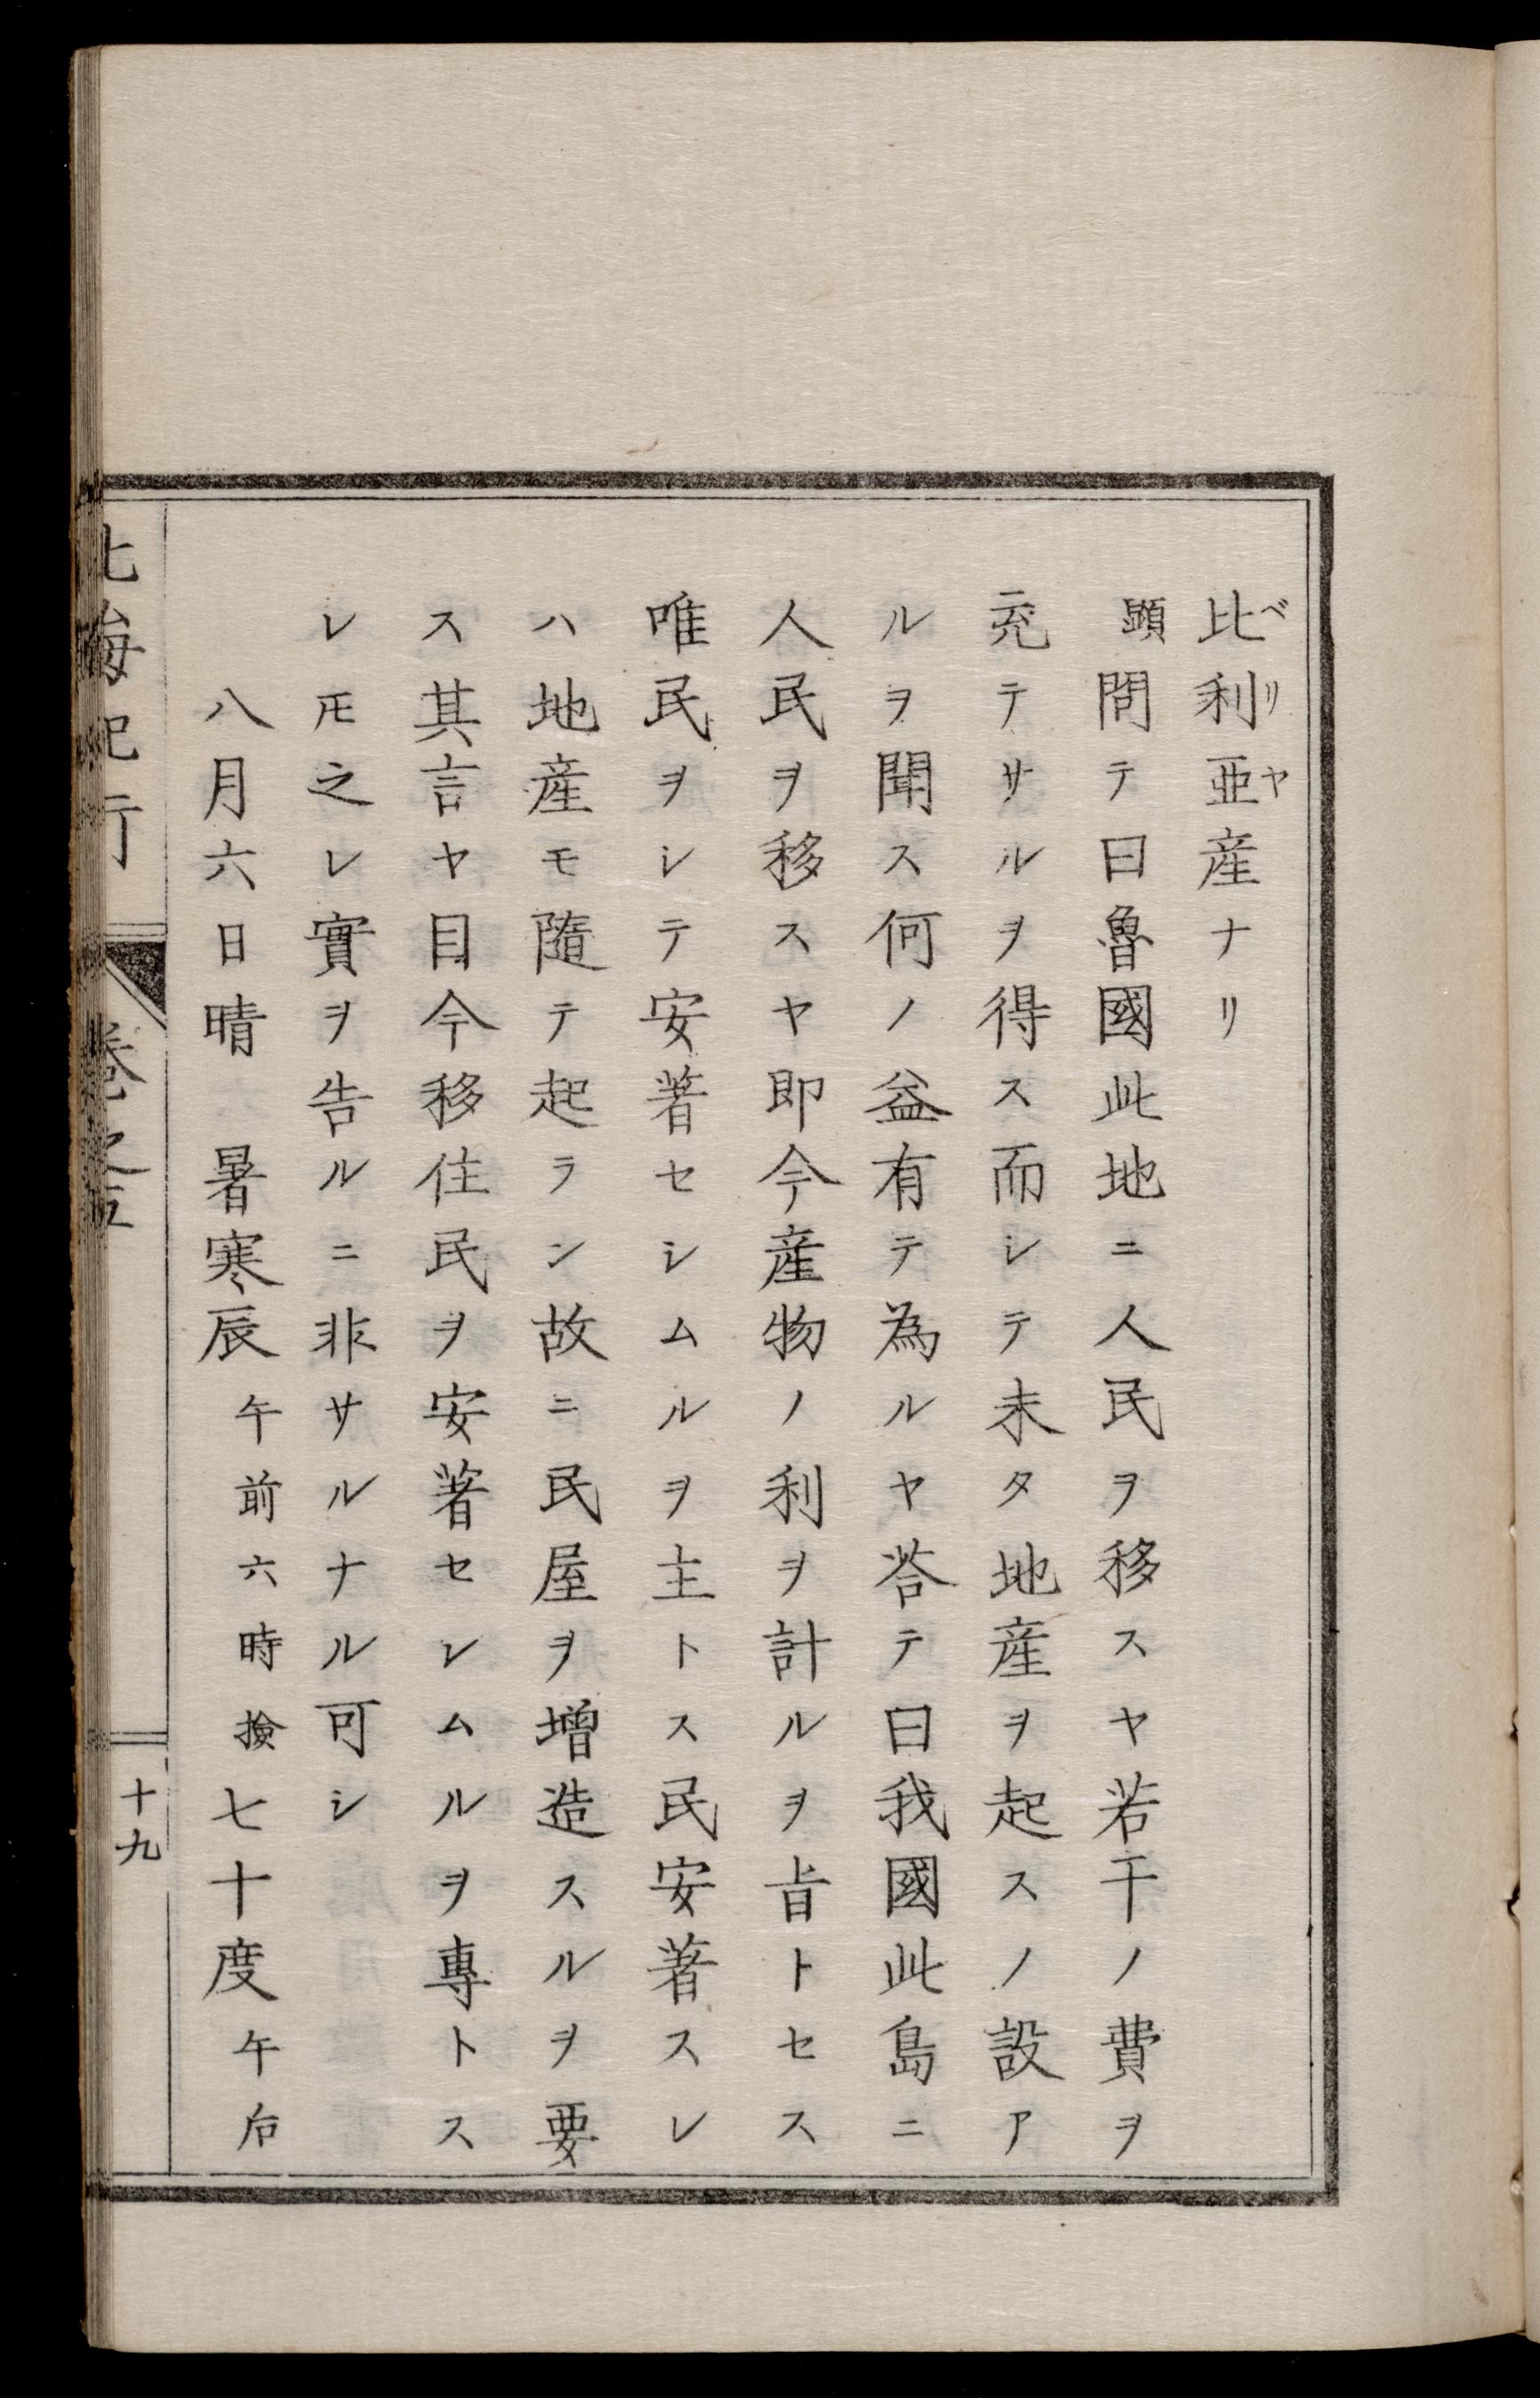 比利亜産ナリ
ベリヤ
顕問テ曰魯國此地ニ人民ヲ移スヤ若干ノ費ヲ
充テサルヲ得ス而シテ未タ地産ヲ起スノ設ア
ルヲ聞ス何ノ益有テ為ルヤ荅テ曰我國此島ニ
人民ヲ移スヤ即今産物ノ利ヲ計ルヲ㫖トセス
唯民ヲシテ安著セシムルヲ主トス民安著スレ
ハ地産モ隨テ起ラン故ニ民屋ヲ増造スルヲ要
ス其言ヤ目今移住民ヲ安著セシムルヲ專トス
レ𪜈之レ實ヲ告ルニ非サルナル可シ
八月六日晴　暑寒辰午前六時撿七十度午后
北海紀行　卷之五　十九